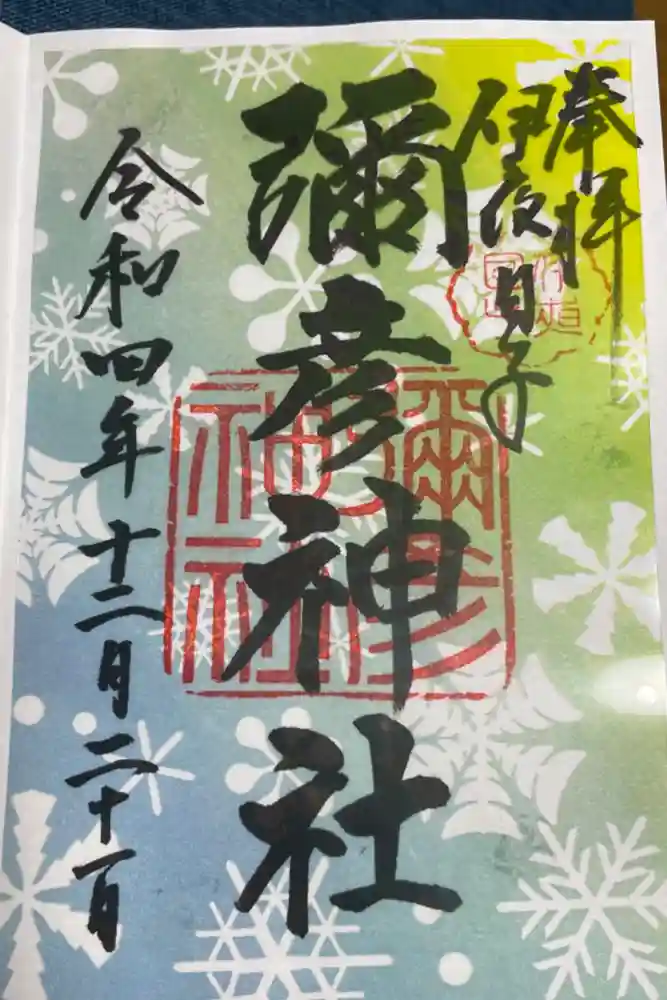 奉拝
伊夜日子
彌彦神社
彌彦神社
令和四年十二月二十一日